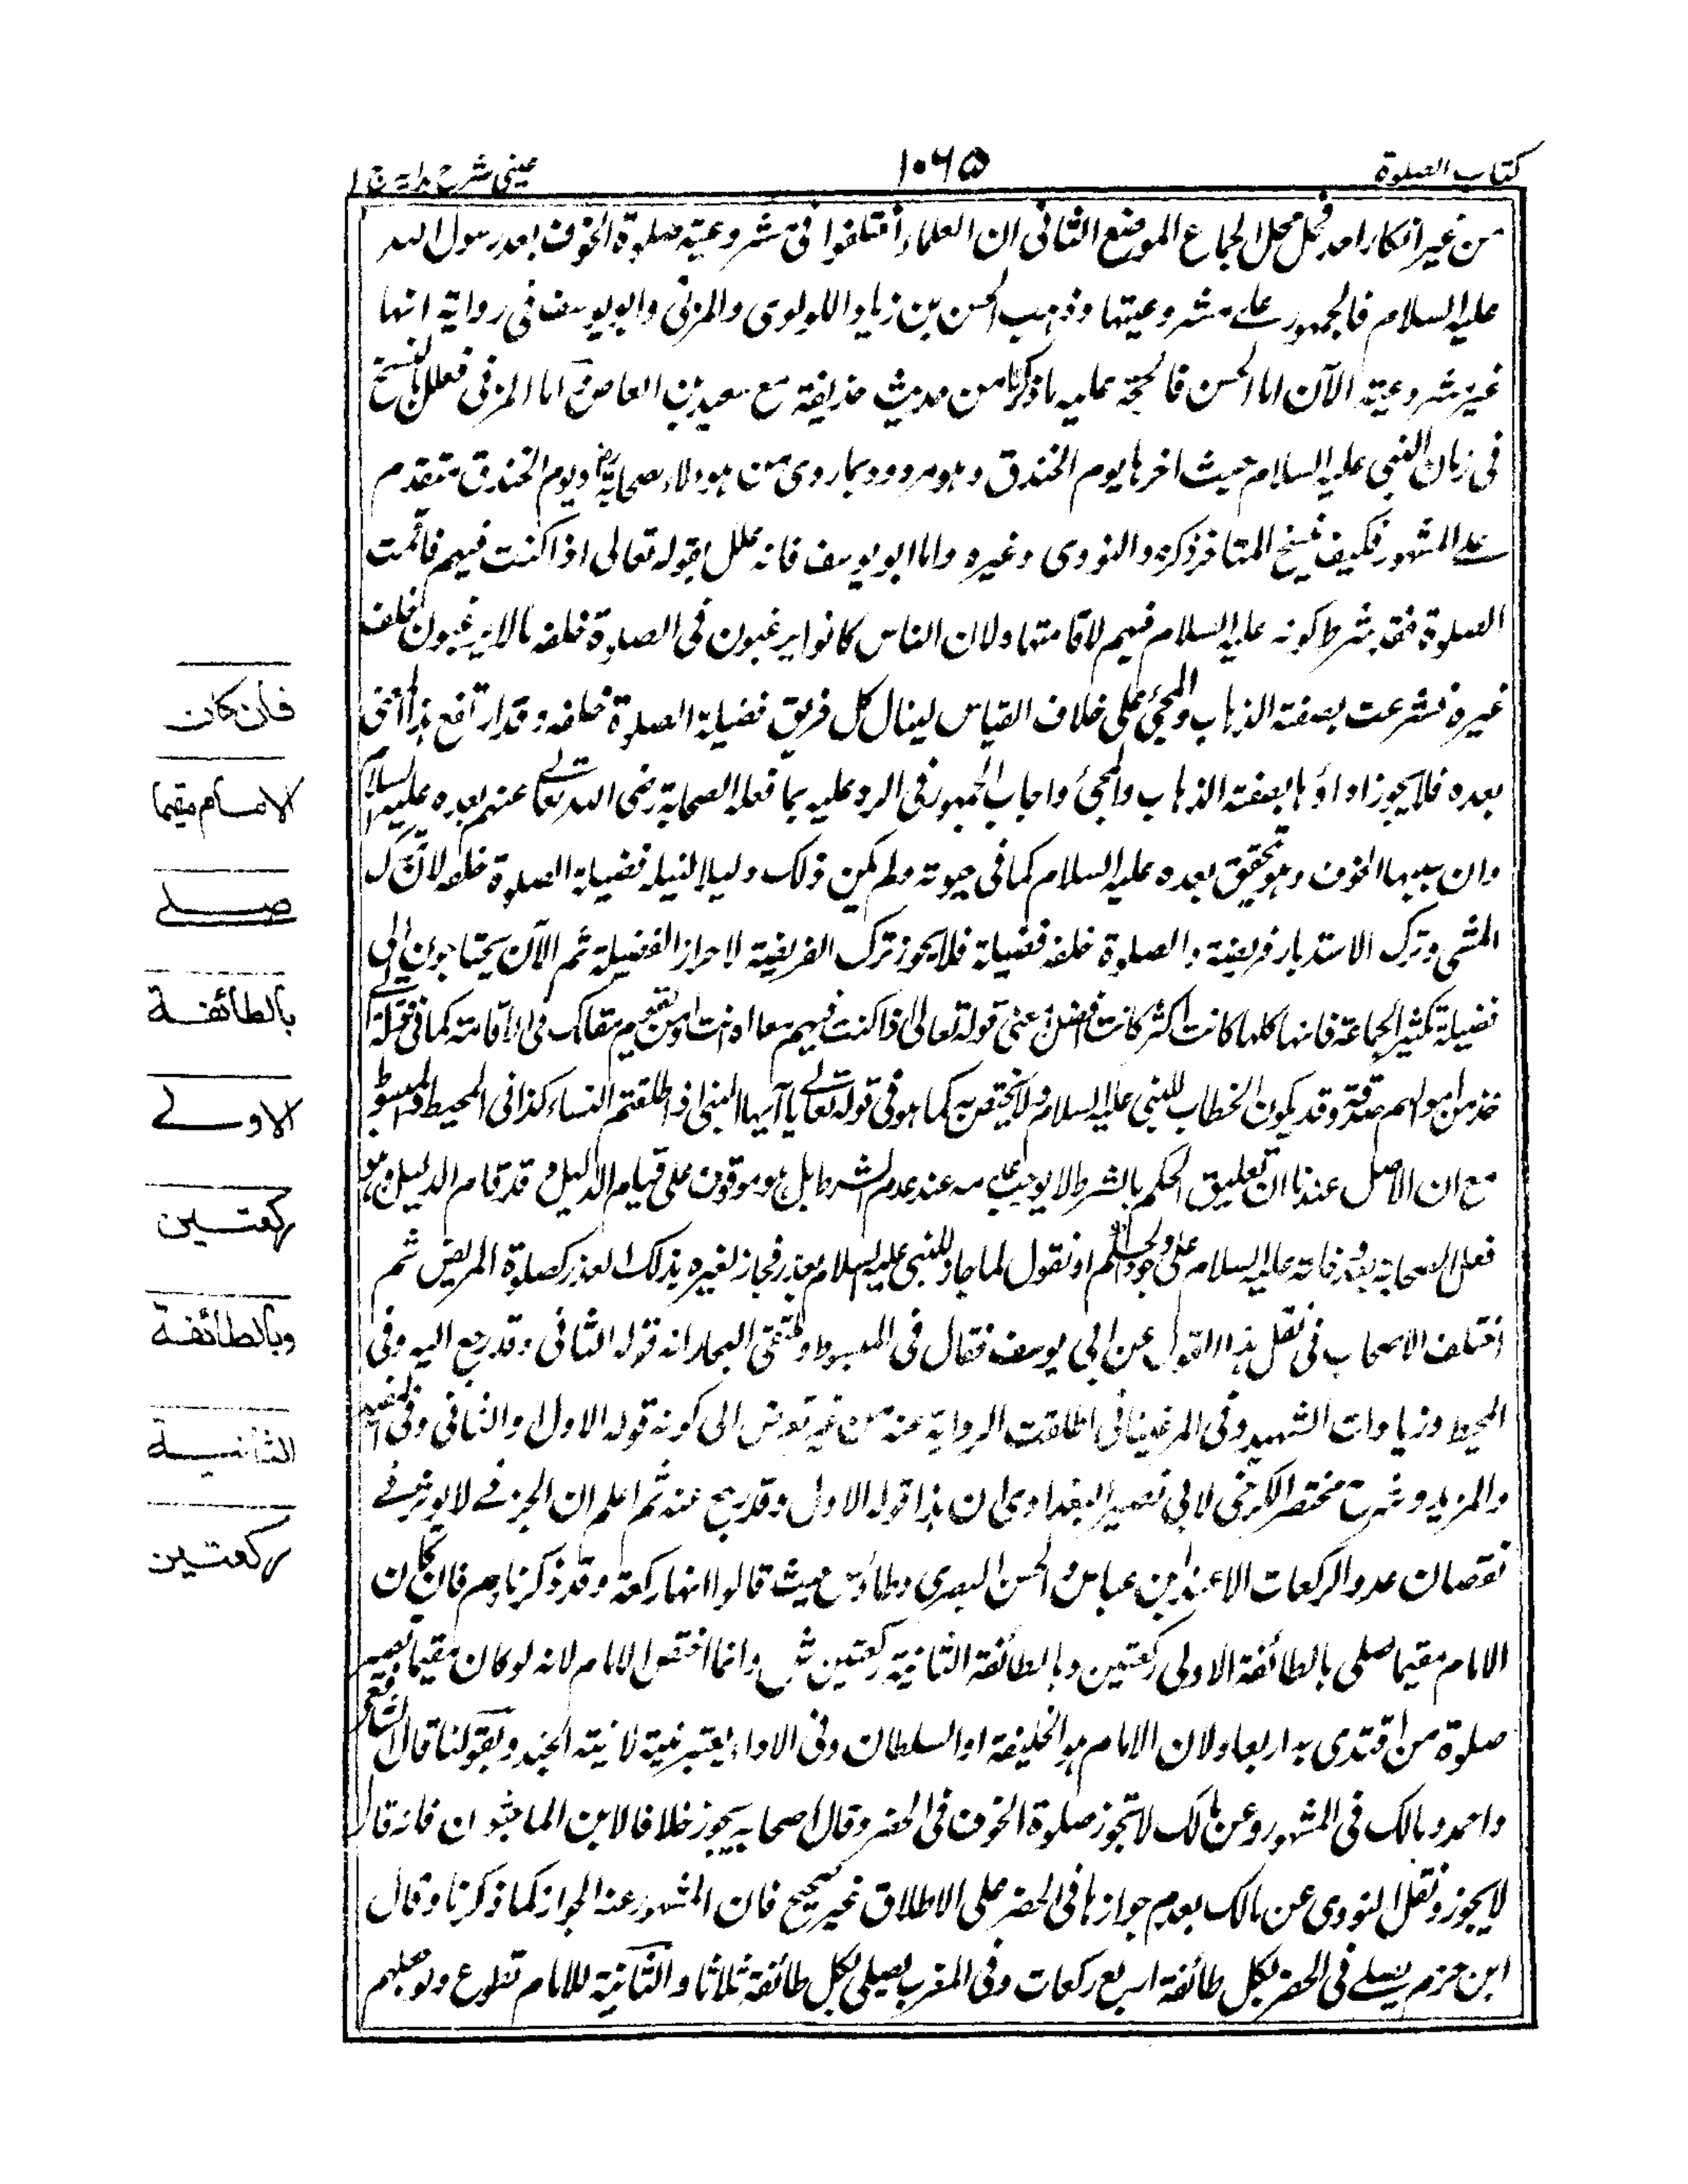 كتاب الصلوة
١٠٦٥
عينى شرح هداية ج ١
من غير انكار احد فحل محل الاجماع الموضع الثانى ان العلماء اختلفوا فى مشروعية صلوة الخوف بعد رسول الله
عليه السلام فالجمهور على مشروعيتها وذهب الحسن بن زياد اللولوى والمزنى وابو يوسف فى رواية انها
غير مشروعية الآن اما الحسن فالحجة عليه ما ذكرنا من حديث حذيفة مع سعيد بن العاص واما المزنى فعلل بالنسخ
فى زمان النبى عليه السلام حيث اخرها يوم الخندق وهو مردود بما روى من هولاء صحابة ويوم الخندق متقدم
على المشهور فكيف ينسخ المتاخر ذكره النووى وغيره واما ابو يوسف فانه علل بقوله تعالى اذا كنت فيهم فاقمت
الصلوة فقد شرط كونه عليه السلام فيهم لاقامتها ولان الناس كانوا يرغبون فى الصلوة خلفه مالا يرغبون خلف
غيره فشرعت بصفة الذهاب والمجئ على خلاف القياس لينال كل فريق فضيلة الصلوة خلفه وقد ارتفع هذا المعنى
بعده فلا يجوز اداؤها بصفة الذهاب والمجئ واجاب الجمهور فى الرد عليه بما فعله الصحابة رضى الله تعالى عنهم بعده عليه السلام
وان سببها الخوف وهو يتحقق بعده عليه السلام كما فى حيوته ولم يكن ذلك دليلا لنيله فضيلة الصلوة خلفه لان ترك
المشى وترك الاستدبار فريضة والصلوة خلفه فضيلة فلا يجوز ترك الفريضة لاحراز الفضيلة ثم الآن يحتاجون الى
فضيلة تكثير الجماعة فانها كلما كانت اكثر كانت افضل ومعنى قوله تعالى اذا كنت فيهم معا انت او من يقوم مقامك فى الاقامة كما فى قوله تعالى
خذ من اموالهم صدقة وقد يكون الخطاب للنبى عليه السلام ولا يختص به كما هو فى قوله تعالى يا ايها النبى اذا طلقتم النساء كذا فى المحيط والمبسوط
مع ان الاصل عندنا ان تعليق الحكم بالشرط لا يوجب عدمه عند عدم الشرط بل هو موقوف على قيام الدليل وقد قام الدليل وهو
فعل الصحابة بعد وفاته عليه السلام على او نقول لما جاز للنبى عليه السلام بعذر فجاز لغيره بذلك العذر كصلوة المريض ثم
اختلف الاصحاب فى نقل هذا القول عن ابى يوسف فقال فى المبسوط وملتقى البحار انه قوله الثانى وقد رجع اليه وفى
المحيط وزيادات الشهيد وفى المرغينانى اطلقت الرواية عنه من غير تعرض الى كونه قوله الاول او الثانى وفى المفيد
والمزيد وشرح مختصر الكرخى لابى نصير البغدادى ان هذا قوله الاول وقد رجع عنه ثم اعلم ان الخوف لا يؤثر فى
نقصان عدد الركعات الا عند ابن عباس والحسن البصرى وطاؤس حيث قالوا انها ركعة وقد ذكرناه م فان كان
الامام مقيما صلى بالطائفة الاولى ركعتين وبالطائفة الثانية ركعتين ش وانما اختص الامام لانه لو كان مقيما تصير
صلوة من اقتدى به اربعا ولان الامام هو الخليفة او السلطان وفى الاداء يعتبر نيته لا نية الجند وبقولنا قال الشافعى
واحمد ومالك فى المشهور وعن مالك لا تجوز صلوة الخوف فى الحضر وقال اصحابه يجوز خلافا لابن الماجشون فانه قال
لا يجوز ونقل النووى عن مالك بعدم جوازها فى الحضر على الاطلاق غير صحيح فان المشهور عنه الجواز كما ذكرنا وقال
ابن حزم يصلى فى الحضر بكل طائفة اربع ركعات وفى المغرب يصلى بكل طائفة ثلاثا والثانية للامام تطوع
فان كان
الامام مقيما
صلى
بالطائفة
الاولى
ركعتين
وبالطائفة
الثانية
ركعتين